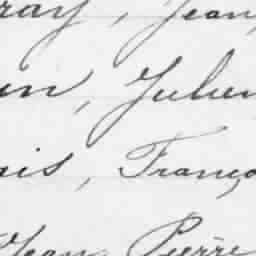 ray, Jean
en, Julien
is, Franço
Jean Pierre